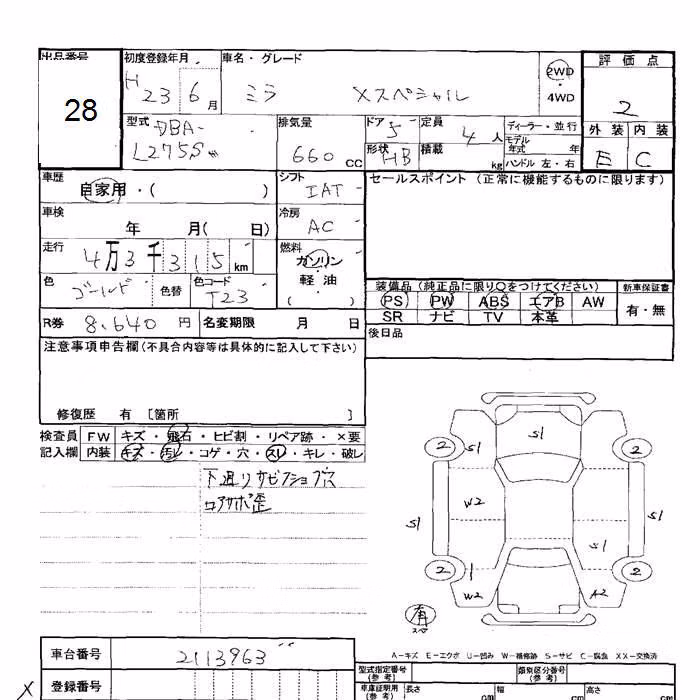 出品番号 初度登録年月 車名・グレード 2WD 評価点
28 H 23 6月 ミラ Xスペシャル ・ 4WD 2
型式 DBA- 排気量 ドア 5 定員 4人 ディーラー・並行 外装 内装
L275S 660 CC 形状 HB 積載 kg モデル年式 年 ハンドル 左・右 E C
車歴 自家用・( ) シフト IAT セールスポイント (正常に機能するものに限ります)
車検 年 月( 日) 冷房 AC
走行 4万3千315km 燃料 ガソリン
色 ゴールド 色替 色コード T23 軽油 ( )
装備品 (純正品に限り○をつけてください) 新車保証書
PS PW ABS エアB AW 有・無
SR ナビ TV 本革
R券 8,640円 名変期限 月 日 後日品
注意事項申告欄(不具合内容等は具体的に記入して下さい)
修復歴 有 [箇所 ]
検査員 FW キズ・飛石・ヒビ割・リペア跡・×要
記入欄 内装 キズ・汚レ・コゲ・穴・スレ・キレ・破レ
下廻りサビ
コアサポ歪
S1
2 S1 2
W2
S1 S1
S1
2 1 2
W2 A2
A-キズ E-エクボ U-凹み W-補修跡 S-サビ C-腐食 XX-交換済
車台番号 2113963 型式指定番号 (参考) 類別区分番号 (参考)
X 登録番号 車庫証明用 (参考) 長さ cm 幅 cm 高さ cm